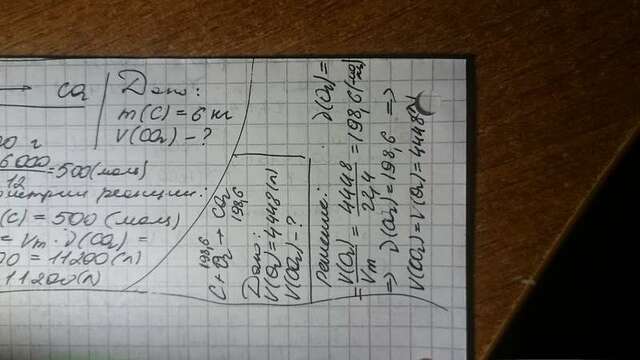 CO₂
Дано:
m(C) = 6 кг
V(O₂) - ?
6000
12
= 500 (моль)
реакции:
(C) = 500 (моль)
= Vm · ν(CO₂) =
= 11200 (л)
11200 (л)
198,6
C + O₂ → CO₂
198,6
Дано:
V(O₂) = 4448 (л)
V(CO₂) - ?
Решение: ν(O₂) =
= V(O₂)/Vm = 4448/22,4 = 198,6
⇒ ν(O₂) = 198,6 ⇒
V(CO₂) = V(O₂) = 4448 л